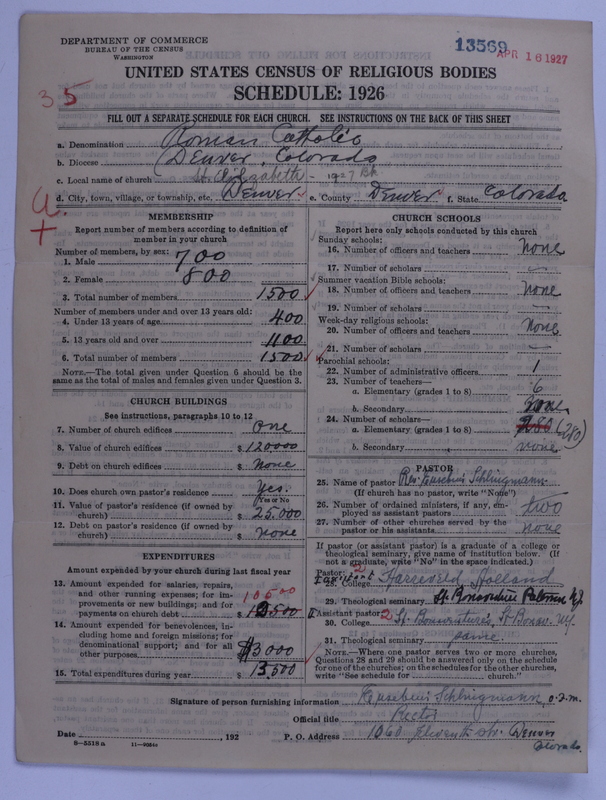 DEPARTMENT OF COMMERCE
BUREAU OF THE CENSUS
WASHINGTON
13569
APR 16 1927
UNITED STATES CENSUS OF RELIGIOUS BODIES
SCHEDULE: 1926
35
FILL OUT A SEPARATE SCHEDULE FOR EACH CHURCH. SEE INSTRUCTIONS ON THE BACK OF THIS SHEET
a. Denomination Roman Catholic
b. Diocese Denver, Colorado
c. Local name of church St. Elizabeth - 1927
d. City, town, village, or township, etc. Denver e. County Denver f. State Colorado
MEMBERSHIP
Report number of members according to definition of member in your church
Number of members, by sex:
1. Male 700
2. Female 800
3. Total number of members 1500
Number of members under and over 13 years old:
4. Under 13 years of age 400
5. 13 years old and over 1100
6. Total number of members 1500
NOTE.—The total given under Question 6 should be the
same as the total of males and females given under Question 3.
CHURCH BUILDINGS
See instructions, paragraphs 10 to 12
7. Number of church edifices One
8. Value of church edifices $ 120.000
9. Debt on church edifices $ None
10. Does church own pastor's residence Yes.
Yes or No
11. Value of pastor's residence (if owned by
church) $ 25.000
12. Debt on pastor's residence (if owned by
church) $ none
EXPENDITURES
Amount expended by your church during last fiscal year
13. Amount expended for salaries, repairs,
and other running expenses; for im-
provements or new buildings; and for
payments on church debt 10500
14. Amount expended for benevolences, in-
cluding home and foreign missions; for
denominational support; and for all
other purposes $3000
15. Total expenditures during year $ 13.500
CHURCH SCHOOLS
Report here only schools conducted by this church
Sunday schools:
16. Number of officers and teachers none
17. Number of scholars —
Summer vacation Bible schools:
18. Number of officers and teachers none
19. Number of scholars —
Week-day religious schools:
20. Number of officers and teachers none
21. Number of scholars —
Parochial schools:
22. Number of administrative officers 1
23. Number of teachers—
a. Elementary (grades 1 to 8) 6
b. Secondary none
24. Number of scholars—
a. Elementary (grades 1 to 8) (280)
b. Secondary none
PASTOR
25. Name of pastor Rev. Eusebius Schlingmann
(If church has no pastor, write "None")
26. Number of ordained ministers, if any, em-
ployed as assistant pastors two
27. Number of other churches served by the
pastor or his assistants none
If pastor (or assistant pastor) is a graduate of a college or
theological seminary, give name of institution below. (If
not a graduate, write "No" in the space indicated.)
Pastor: 2
28. College Harreveld Holland
29. Theological seminary St. Bonaventure Paterson N.J.
Assistant pastor: 2
30. College St. Bonaventure's, St. Bonav. N.Y.
31. Theological seminary same
NOTE.—Where one pastor serves two or more churches,
Questions 28 and 29 should be answered only on the schedule
for one of the churches; on the schedules for the other churches,
write "See schedule for church."
Signature of person furnishing information Eusebius Schlingmann, o.f.m.
Official title Rector
Date , 192 P. O. Address 1060 Eleventh Str. Denver
Colorado.
8—5518 a 11—9084